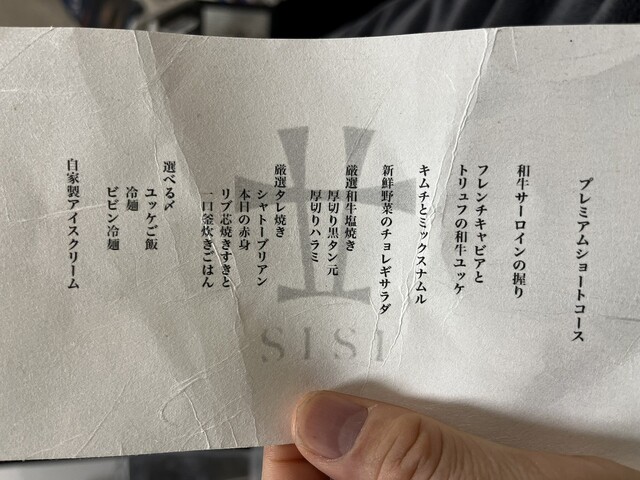 プレミアムショートコース
和牛サーロインの握り
フレンチキャビアと
トリュフの和牛ユッケ
キムチとミックスナムル
新鮮野菜のチョレギサラダ
厳選和牛塩焼き
厚切り黒タン元
厚切りハラミ
厳選タレ焼き
シャトーブリアン
本日の赤身
リブ芯焼きすきと
一口釜炊きごはん
選べる〆
ユッケご飯
冷麺
ビビン冷麺
自家製アイスクリーム
SISI